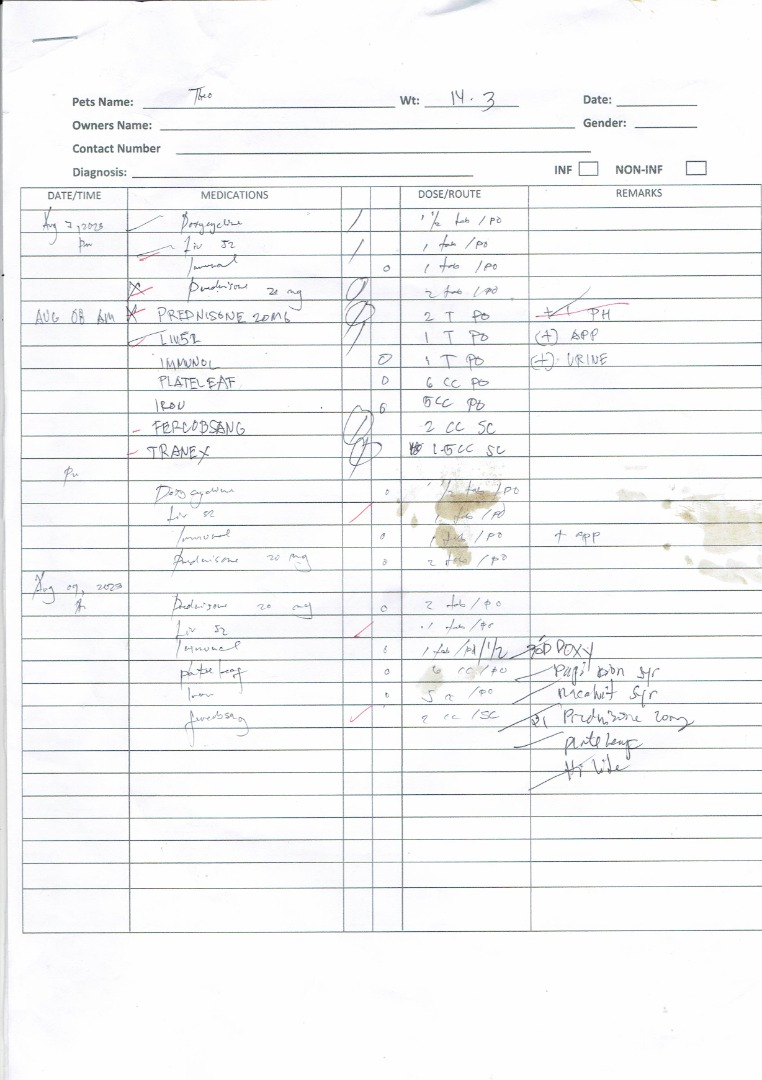 Pets Name: Theo Wt: 14.3 Date:
Owners Name: Gender:
Contact Number
Diagnosis: INF NON-INF
DATE/TIME MEDICATIONS DOSE/ROUTE REMARKS
Aug 7, 2023 Doxycycline 1 1/2 tab / PO
pm Liv 52 1 tab / PO
Immunol 0 1 tab / PO
Prednisone 20 mg 2 tab / PO
AUG 08 AM PREDNISONE 20MG 2 T PO PH
LIV52 1 T PO (+) APP
IMMUNOL 0 1 T PO (+) URINE
PLATELEAF 0 6 CC PO
IRON 0 5CC PO
FERCOBSANG 2 CC SC
TRANEX 1.5CC SC
pm
Doxycycline 0 1 1/2 tab / PO
Liv 52 1 tab / PO
Immunol 0 1 tab / PO + app
Prednisone 20 mg 0 2 tab / PO
Aug 09, 2023
Prednisone 20 mg 0 2 tab / PO
Liv 52 1 tab / PO
Immunol 0 1 tab / PO 1/2 DOXY
plateleaf 0 6 cc / PO syr
Iron 0 5 cc / PO syr
fercobsang 2 cc / SC Prednisone 20mg
plateleaf